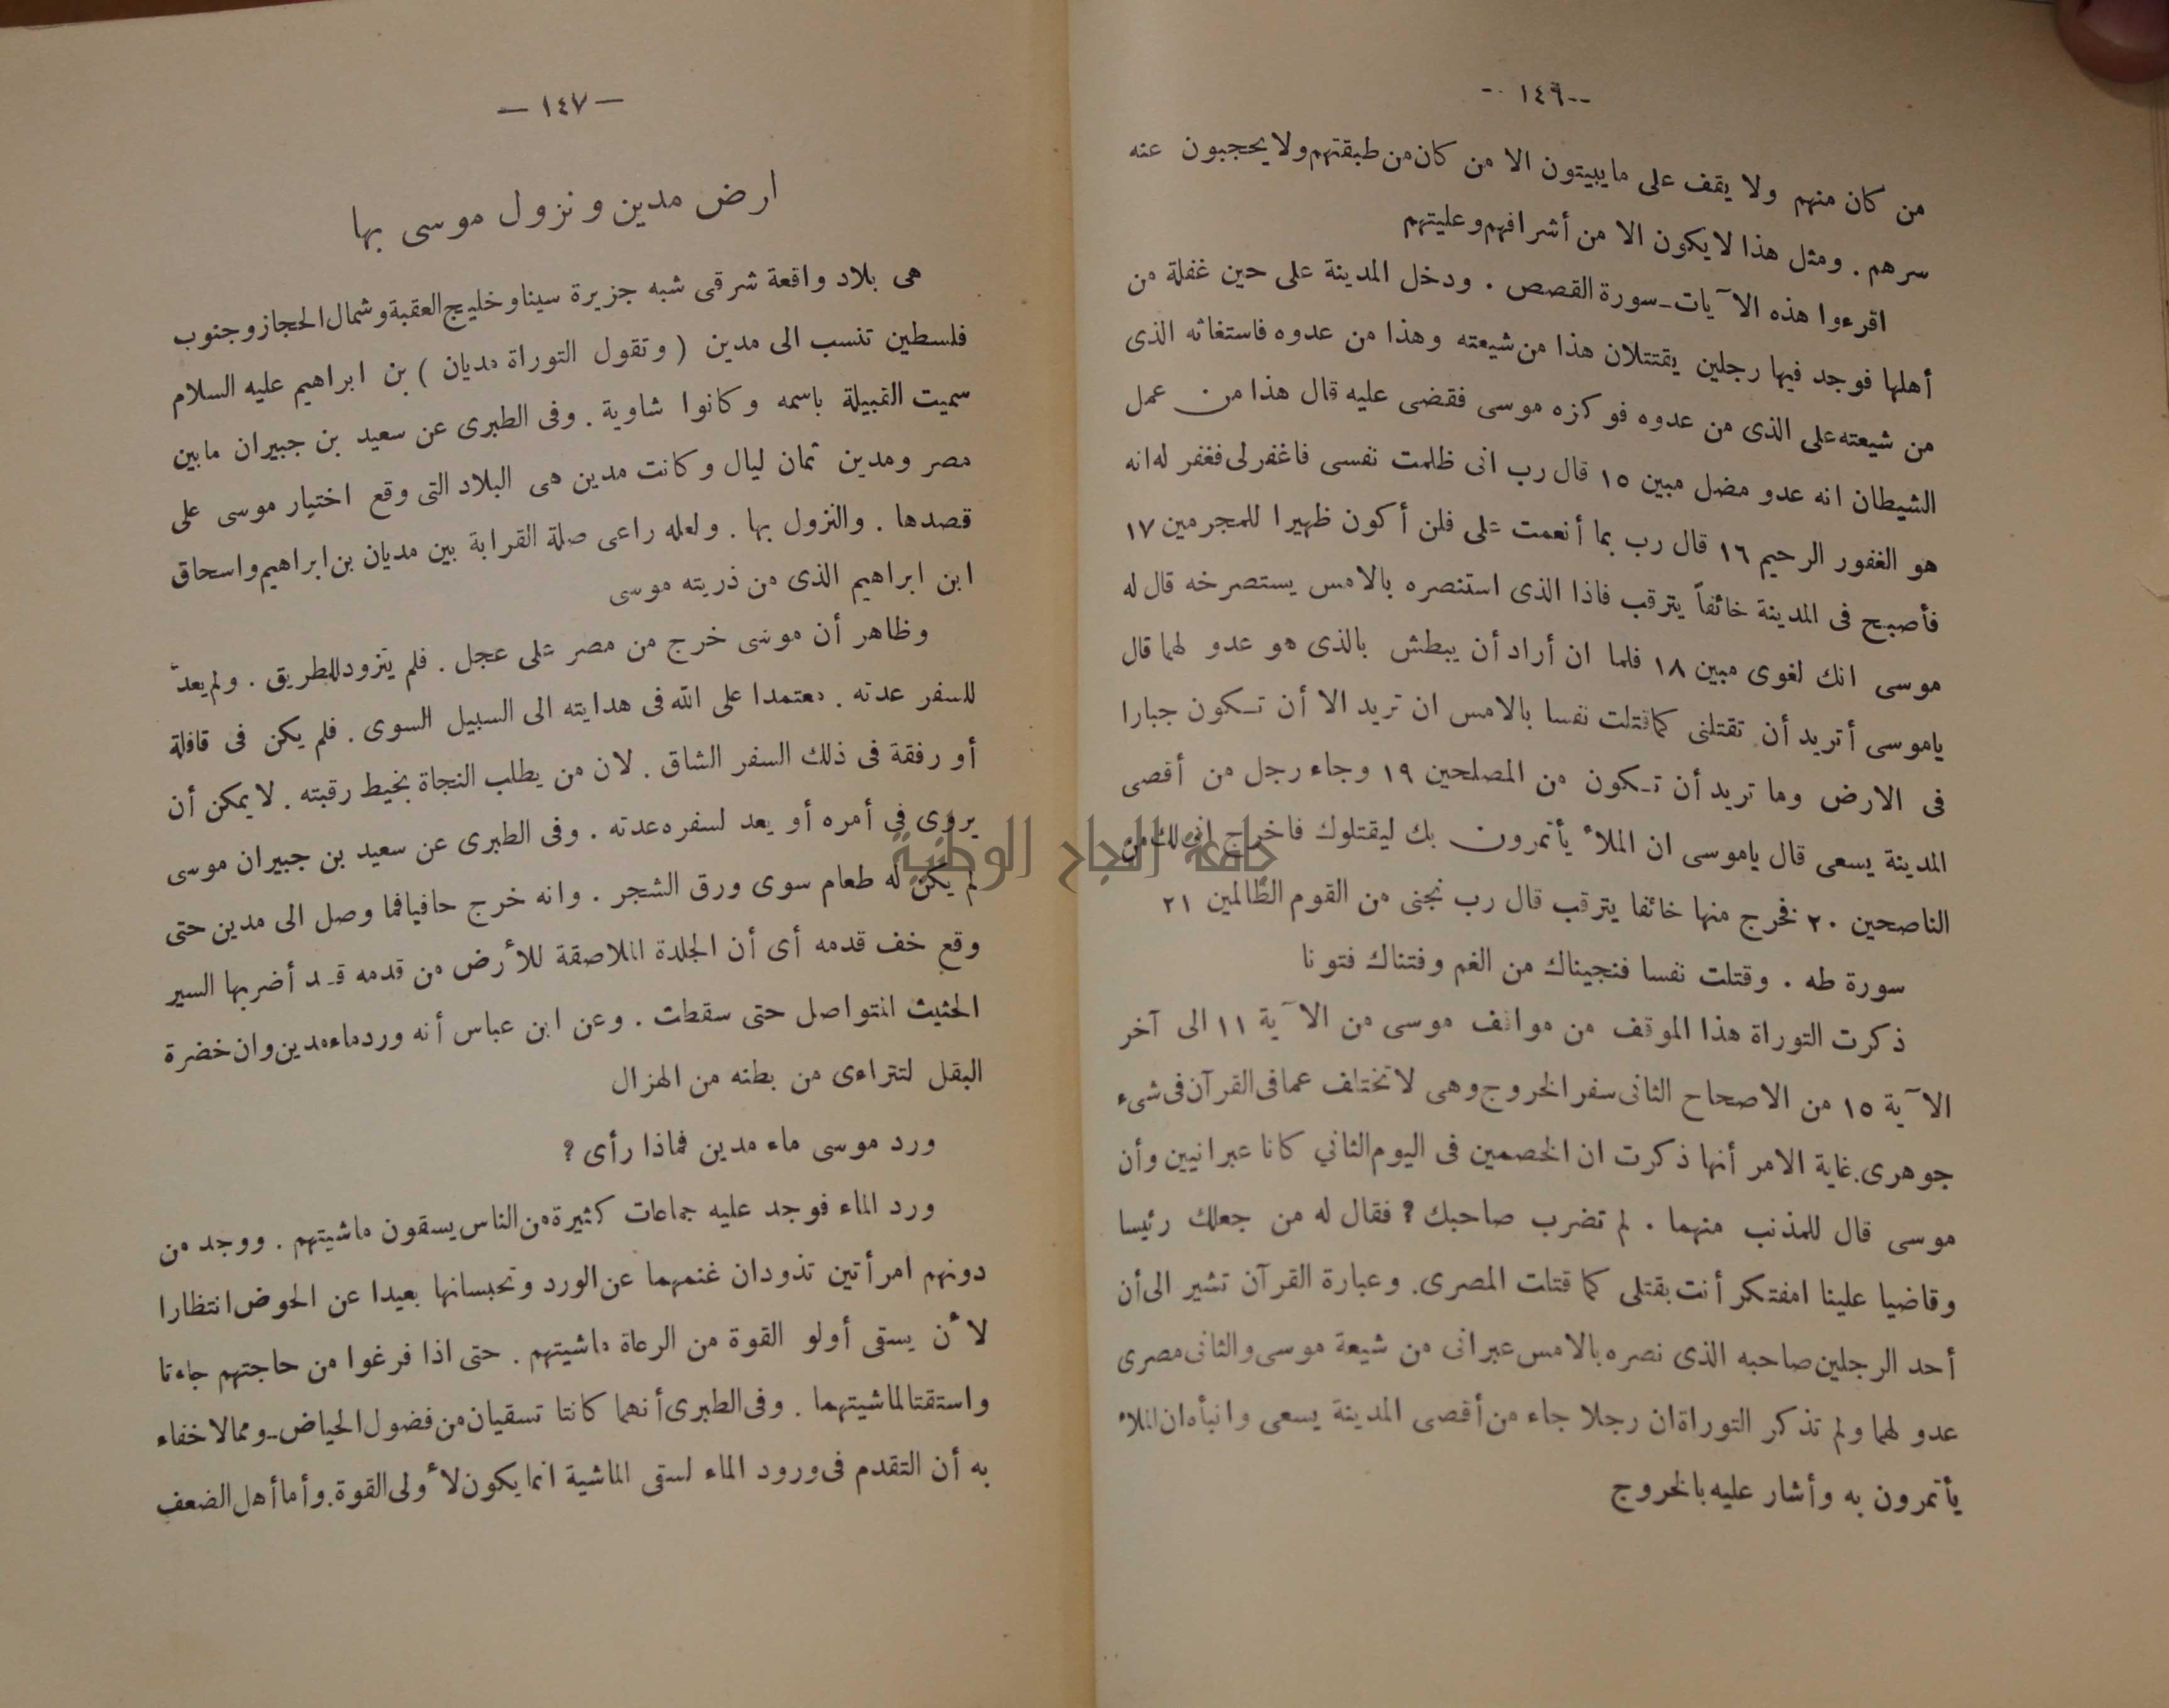 --١٤٦--
من كان منهم ولا يقف على ما يبيتون الا من كان من طبقتهم ولا يحجبون عنه
سرهم . ومثل هذا لا يكون الا من أشرافهم وعليتهم
اقرءوا هذه الآيات ـ سورة القصص . ودخل المدينة على حين غفلة من
أهلها فوجد فيها رجلين يقتتلان هذا من شيعته وهذا من عدوه فاستغاثه الذى
من شيعته على الذى من عدوه فوكزه موسى فقضى عليه قال هذا من عمل
الشيطان انه عدو مضل مبين ١٥ قال رب انى ظلمت نفسى فاغفر لى فغفر له انه
هو الغفور الرحيم ١٦ قال رب بما أنعمت على فلن أكون ظهيرا للمجرمين ١٧
فأصبح فى المدينة خائفاً يترقب فاذا الذى استنصره بالامس يستصرخه قال له
موسى انك لغوى مبين ١٨ فلما ان أراد أن يبطش بالذى هو عدو لهما قال
ياموسى أتريد أن تقتلنى كما قتلت نفسا بالامس ان تريد الا أن تكون جبارا
فى الارض وما تريد أن تكون من المصلحين ١٩ وجاء رجل من أقصى
المدينة يسعى قال ياموسى ان الملأ يأتمرون بك ليقتلوك فاخرج انى لك من
الناصحين ٢٠ فخرج منها خائفا يترقب قال رب نجنى من القوم الظالمين ٢١
سورة طه . وقتلت نفسا فنجيناك من الغم وفتناك فتونا
ذكرت التوراة هذا الموقف من مواقف موسى من الآية ١١ الى آخر
الآية ١٥ من الاصحاح الثانى سفر الخروج وهى لا تختلف عما فى القرآن فى شىء
جوهرى . غاية الامر أنها ذكرت ان الخصمين فى اليوم الثاني كانا عبرانيين وأن
موسى قال للمذنب منهما . لم تضرب صاحبك ؟ فقال له من جعلك رئيسا
وقاضيا علينا امفتكر أنت بقتلى كما قتلت المصرى . وعبارة القرآن تشير الى أن
أحد الرجلين صاحبه الذى نصره بالامس عبرانى من شيعة موسى والثانى مصرى
عدو لهما ولم تذكر التوراة ان رجلا جاء من أقصى المدينة يسعى وانبأه ان الملاء
يأتمرون به وأشار عليه بالخروج
— ١٤٧ —
ارض مدين ونزول موسى بها
هى بلاد واقعة شرقى شبه جزيرة سينا وخليج العقبة وشمال الحجاز وجنوب
فلسطين تنسب الى مدين ( وتقول التوراة مديان ) بن ابراهيم عليه السلام
سميت القبيلة باسمه وكانوا شاوية . وفى الطبرى عن سعيد بن جبيران مابين
مصر ومدين ثمان ليال وكانت مدين هى البلاد التى وقع اختيار موسى على
قصدها . والنزول بها . ولعله راعى صلة القرابة بين مديان بن ابراهيم واسحاق
ابن ابراهيم الذى من ذريته موسى
وظاهر أن موسى خرج من مصر على عجل . فلم يتزود للطريق . ولم يعدّ
للسفر عدته . معتمدا على الله فى هدايته الى السبيل السوى . فلم يكن فى قافلة
أو رفقة فى ذلك السفر الشاق . لان من يطلب النجاة بخيط رقبته . لا يمكن أن
يروى فى أمره أو يعد لسفره عدته . وفى الطبرى عن سعيد بن جبيران موسى
لم يكن له طعام سوى ورق الشجر . وانه خرج حافيا فما وصل الى مدين حتى
وقع خف قدمه أى أن الجلدة الملاصقة للأرض من قدمه قد أضر بها السير
الحثيث المتواصل حتى سقطت . وعن ابن عباس أنه ورد ماء مدين وان خضرة
البقل لتتراءى من بطنه من الهزال
ورد موسى ماء مدين فماذا رأى ؟
ورد الماء فوجد عليه جماعات كثيرة من الناس يسقون ماشيتهم . ووجد من
دونهم امرأتين تذودان غنمهما عن الورد وتحبسانها بعيدا عن الحوض انتظارا
لأن يسقى أولو القوة من الرعاة ماشيتهم . حتى اذا فرغوا من حاجتهم جاءتا
واستقتا لماشيتهما . وفى الطبرى أنهما كانتا تسقيان من فضول الحياض ـ ومما لا خفاء
به أن التقدم فى ورود الماء لسقى الماشية انما يكون لأولى القوة . وأما أهل الضعف
جامعة النجاح الوطنية